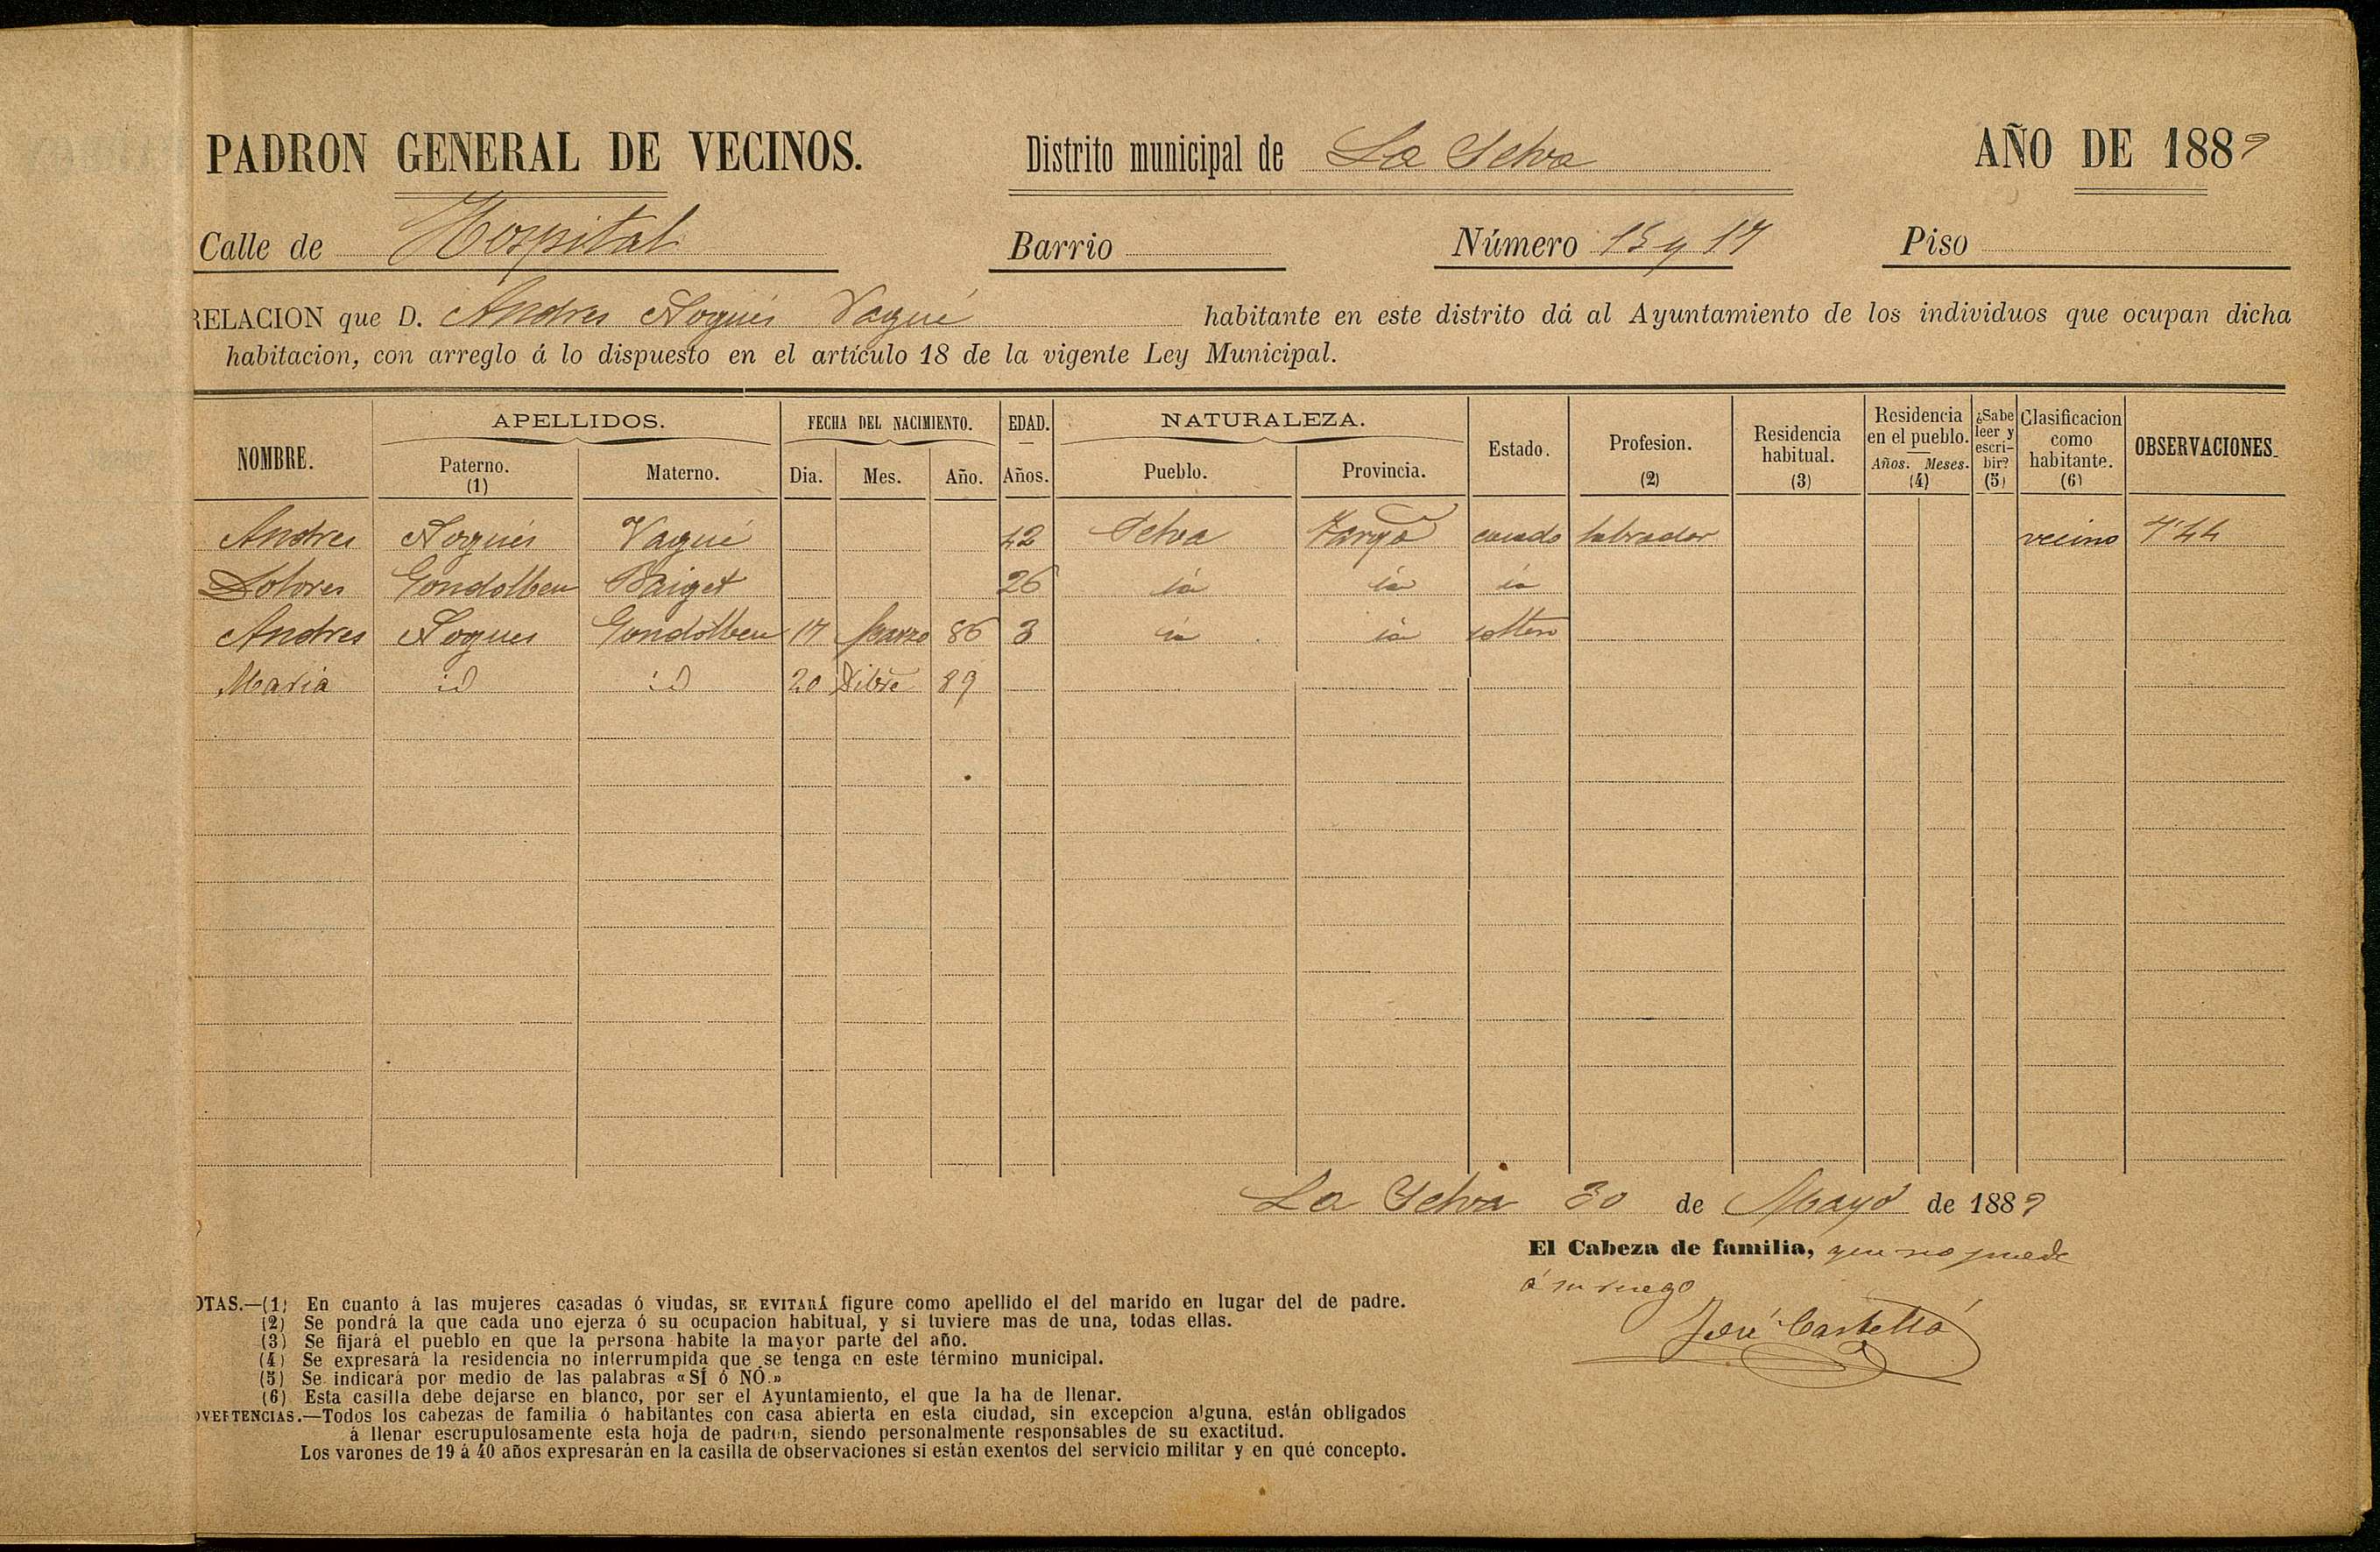 PADRON GENERAL DE VECINOS. Distrito municipal de La Selva AÑO DE 1889
Calle de Hospital Barrio Número 15 y 17 Piso
RELACION que D. Andres Nogués Vagué habitante en este distrito dá al Ayuntamiento de los individuos que ocupan dicha
habitacion, con arreglo á lo dispuesto en el artículo 18 de la vigente Ley Municipal.
NOMBRE. APELLIDOS. FECHA DEL NACIMIENTO. EDAD. NATURALEZA. Estado. Profesion. (2) Residencia habitual. (3) Residencia en el pueblo. Años. Meses. (4) ¿Sabe leer y escribir? (5) Clasificacion como habitante. (6) OBSERVACIONES.
Paterno. (1) Materno. Dia. Mes. Año. Años. Pueblo. Provincia.
Andres Nogués Vagué 42 Selva Tarrgª casado labrador vecino 7'44
Dolores Gondolbeu Baiget 26 id id id
Andres Nogues Gondolbeu 17 Marzo 86 3 id id soltero
Maria id id 20 Dibre 89
La Selva 30 de Mayo de 1889
El Cabeza de familia, que no puede
á su ruego
José Castelló
OTAS.—(1) En cuanto á las mujeres casadas ó viudas, SE EVITARÁ figure como apellido el del marido en lugar del de padre.
(2) Se pondrá la que cada uno ejerza ó su ocupacion habitual, y si tuviere mas de una, todas ellas.
(3) Se fijará el pueblo en que la persona habite la mayor parte del año.
(4) Se expresará la residencia no interrumpida que se tenga en este término municipal.
(5) Se indicará por medio de las palabras «SÍ ó NÓ.»
(6) Esta casilla debe dejarse en blanco, por ser el Ayuntamiento, el que la ha de llenar.
DVERTENCIAS.—Todos los cabezas de familia ó habitantes con casa abierta en esta ciudad, sin excepcion alguna, están obligados
á llenar escrupulosamente esta hoja de padron, siendo personalmente responsables de su exactitud.
Los varones de 19 á 40 años expresarán en la casilla de observaciones si están exentos del servicio militar y en qué concepto.